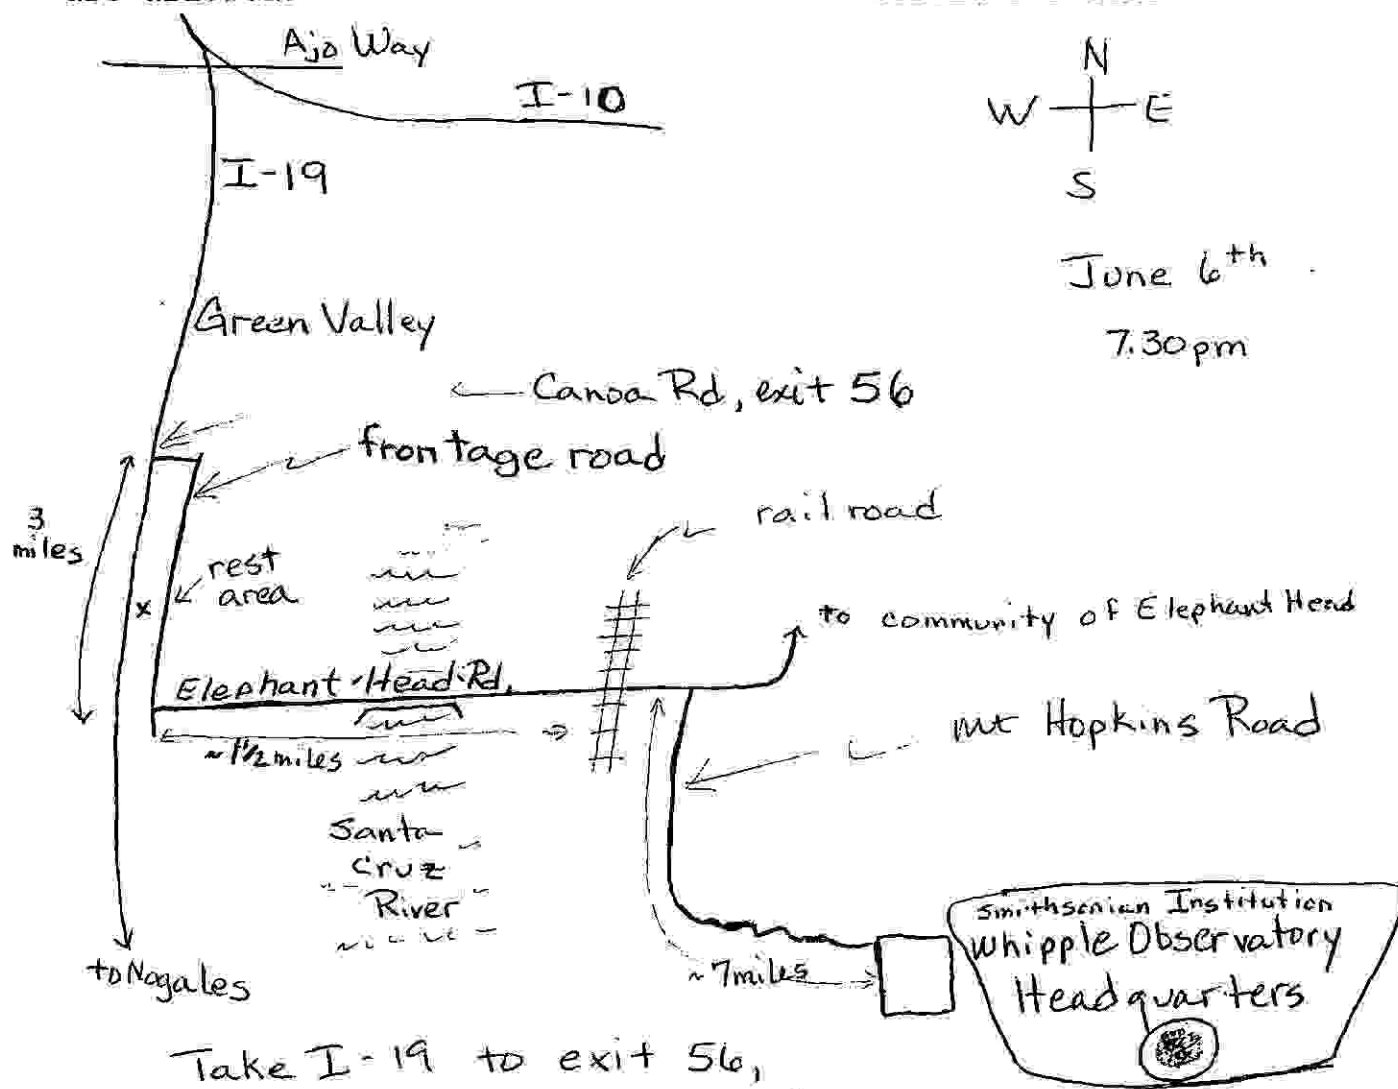 Ajo Way
I-10
N
W E
S
I-19
June 6th
7.30pm
Green Valley
Canoa Rd, exit 56
frontage road
3
miles
rail road
rest
area
to community of Elephant Head
Elephant Head Rd.
~ 1 1/2 miles
Mt Hopkins Road
Santa
Cruz
River
to Nogales
~ 7 miles
Smithsonian Institution
Whipple Observatory
Headquarters
Take I-19 to exit 56,